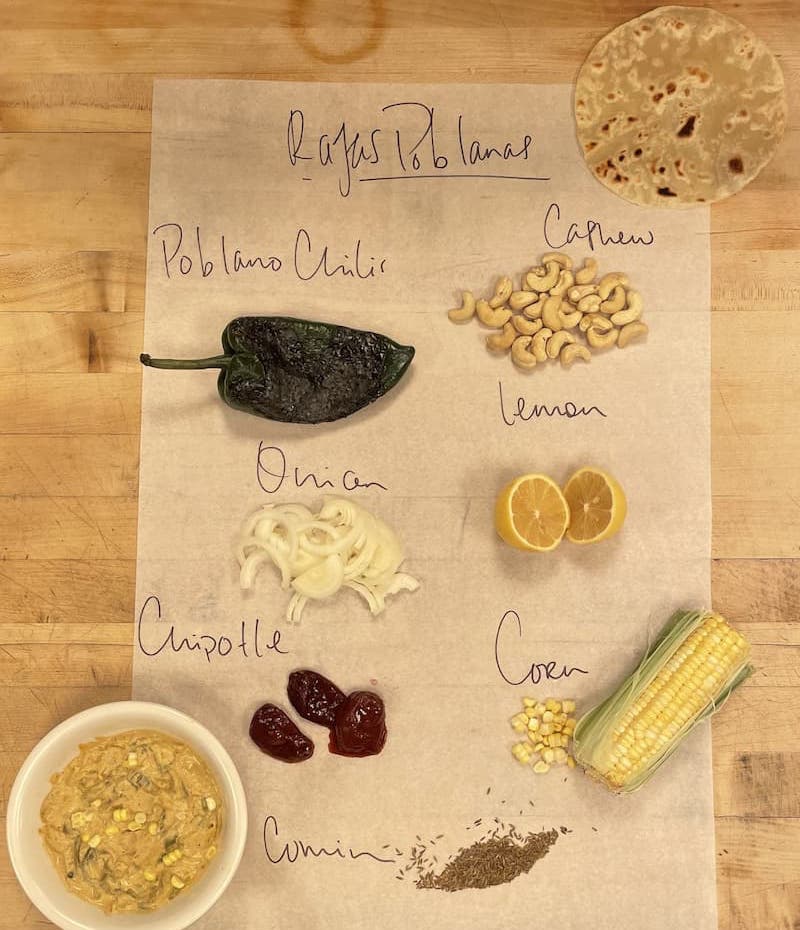 Rajas Poblanas
Poblano Chilis
Cashew
Lemon
Onion
Chipotle
Corn
Comin